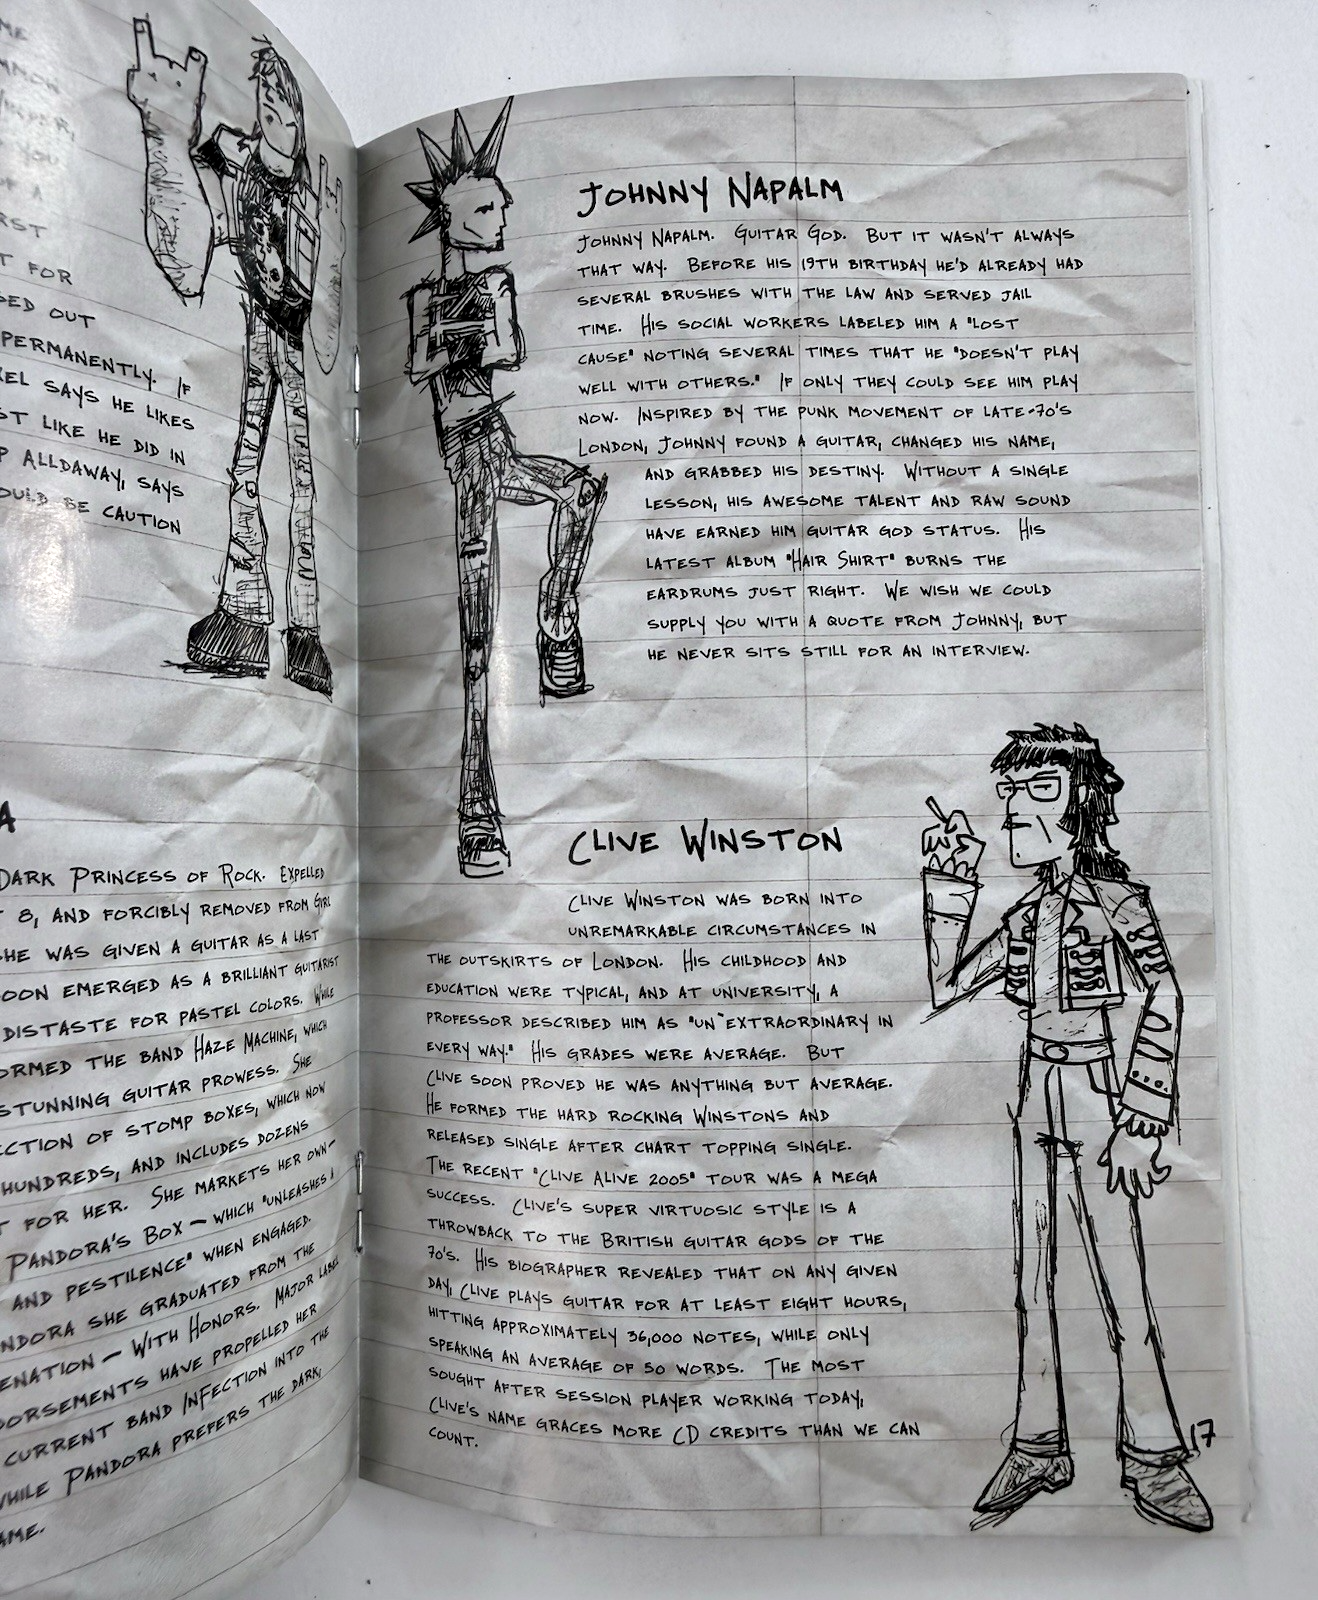 ME
YOU
OF A
RST
T FOR
SED OUT
PERMANENTLY. IF
XEL SAYS HE LIKES
ST LIKE HE DID IN
P ALLDAWAY, SAYS
OULD BE CAUTION
A
DARK PRINCESS OF ROCK. EXPELLED
T 8, AND FORCIBLY REMOVED FROM GIRL
SHE WAS GIVEN A GUITAR AS A LAST
OON EMERGED AS A BRILLIANT GUITARIST
DISTASTE FOR PASTEL COLORS. WHILE
ORMED THE BAND HAZE MACHINE, WHICH
STUNNING GUITAR PROWESS. SHE
ECTION OF STOMP BOXES, WHICH NOW
HUNDREDS, AND INCLUDES DOZENS
T FOR HER. SHE MARKETS HER OWN-
PANDORA'S BOX - WHICH "UNLEASHES
AND PESTILENCE" WHEN ENGAGED.
NDORA SHE GRADUATED FROM THE
ENATION - WITH HONORS. MAJOR LABEL
DORSEMENTS HAVE PROPELLED HER
CURRENT BAND INFECTION INTO THE
WHILE PANDORA PREFERS THE DARK,
AME.
JOHNNY NAPALM
JOHNNY NAPALM. GUITAR GOD. BUT IT WASN'T ALWAYS
THAT WAY. BEFORE HIS 19TH BIRTHDAY HE'D ALREADY HAD
SEVERAL BRUSHES WITH THE LAW AND SERVED JAIL
TIME. HIS SOCIAL WORKERS LABELED HIM A "LOST
CAUSE" NOTING SEVERAL TIMES THAT HE "DOESN'T PLAY
WELL WITH OTHERS." IF ONLY THEY COULD SEE HIM PLAY
NOW. INSPIRED BY THE PUNK MOVEMENT OF LATE-70'S
LONDON, JOHNNY FOUND A GUITAR, CHANGED HIS NAME,
AND GRABBED HIS DESTINY. WITHOUT A SINGLE
LESSON, HIS AWESOME TALENT AND RAW SOUND
HAVE EARNED HIM GUITAR GOD STATUS. HIS
LATEST ALBUM "HAIR SHIRT" BURNS THE
EARDRUMS JUST RIGHT. WE WISH WE COULD
SUPPLY YOU WITH A QUOTE FROM JOHNNY, BUT
HE NEVER SITS STILL FOR AN INTERVIEW.
CLIVE WINSTON
CLIVE WINSTON WAS BORN INTO
UNREMARKABLE CIRCUMSTANCES IN
THE OUTSKIRTS OF LONDON. HIS CHILDHOOD AND
EDUCATION WERE TYPICAL, AND AT UNIVERSITY, A
PROFESSOR DESCRIBED HIM AS "UN-EXTRAORDINARY IN
EVERY WAY." HIS GRADES WERE AVERAGE. BUT
CLIVE SOON PROVED HE WAS ANYTHING BUT AVERAGE.
HE FORMED THE HARD ROCKING WINSTONS AND
RELEASED SINGLE AFTER CHART TOPPING SINGLE.
THE RECENT "CLIVE ALIVE 2005" TOUR WAS A MEGA
SUCCESS. CLIVE'S SUPER VIRTUOSIC STYLE IS A
THROWBACK TO THE BRITISH GUITAR GODS OF THE
70'S. HIS BIOGRAPHER REVEALED THAT ON ANY GIVEN
DAY, CLIVE PLAYS GUITAR FOR AT LEAST EIGHT HOURS,
HITTING APPROXIMATELY 36,000 NOTES, WHILE ONLY
SPEAKING AN AVERAGE OF 50 WORDS. THE MOST
SOUGHT AFTER SESSION PLAYER WORKING TODAY,
CLIVE'S NAME GRACES MORE CD CREDITS THAN WE CAN
COUNT.
17